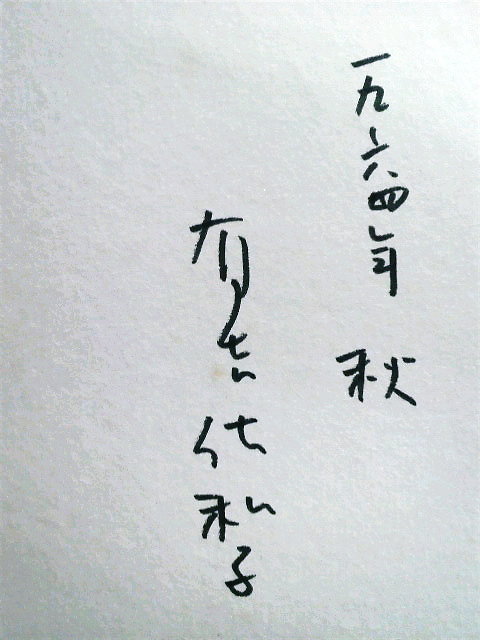 一九六四年 秋
有吉佐和子